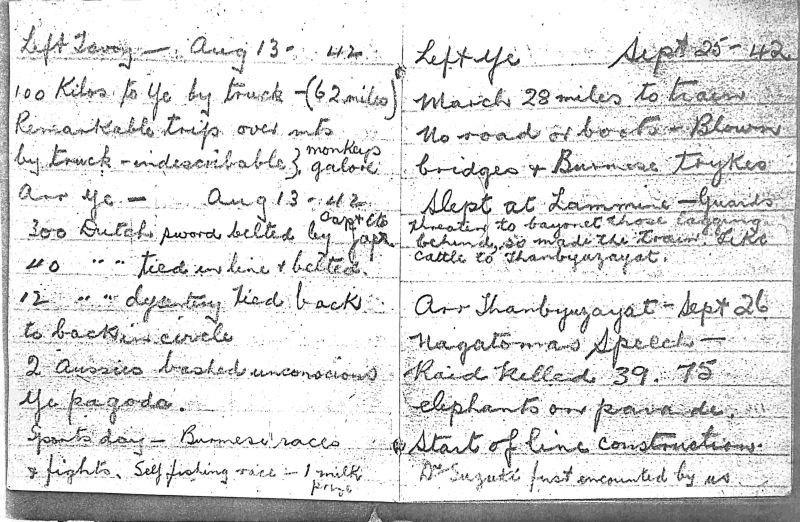 Left Tavoy — Aug 13 - 42
100 Kilos to Ye by truck - (62 miles)
Remarkable trip over mts
by truck - indescribable } monkeys galore
Arr Ye — Aug 13 - 42
300 Dutch sword belted by Capt etc Japs
40 " " tied in line & belted.
12 " " dysentry tied back
to back in circle
2 Aussies bashed unconscious
Ye pagoda.
Sports day — Burmese races
& fights. Self fishing race - 1 milk
prize
Left Ye Sept 25 - 42
March 28 miles to train
No road or boots - Blown
bridges & Burmese trykes
Slept at Lammine - Guards
threaten to bayonet those lagging
behind, so made the train. Like
cattle to Thanbyuzayat.
Arr Thanbyuzayat - Sept 26
Nagatomas Speech —
Raid killed 39. 75
elephants on parade.
Start of line construction.
Dr Suzuki first encounted by us